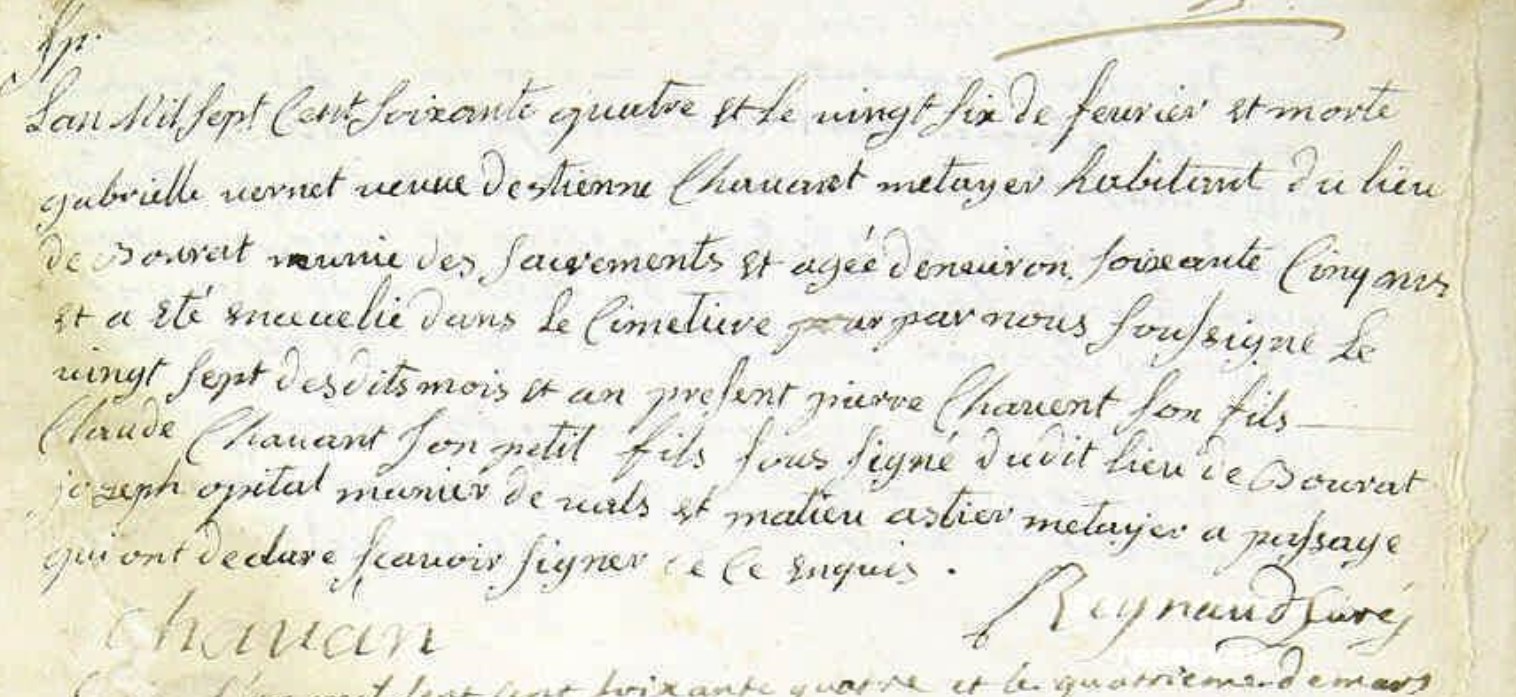 Sp.
Lan Mil sept Cent soixante quatre et le vingt six de feurier et morte
gabrielle vernet veuve destienne Chauant metayer habitant du lieu
de Bourat munie des sacrements et agée denuiron soixante Cinq ans
et a eté enceuelie dans le Cimetiere par nous soussigne le
vingt sept desdits mois et an present pierre Chauent son fils
Claude Chauant son petit fils sous signé dudit lieu de Bourat
jozeph opital munier de uals et matieu astier metayer a passaye
qui ont declare scavoir signer de ce enquis .
Chauan
Reynaud Curé
sept cent soixante quatre et le quatrieme de mars